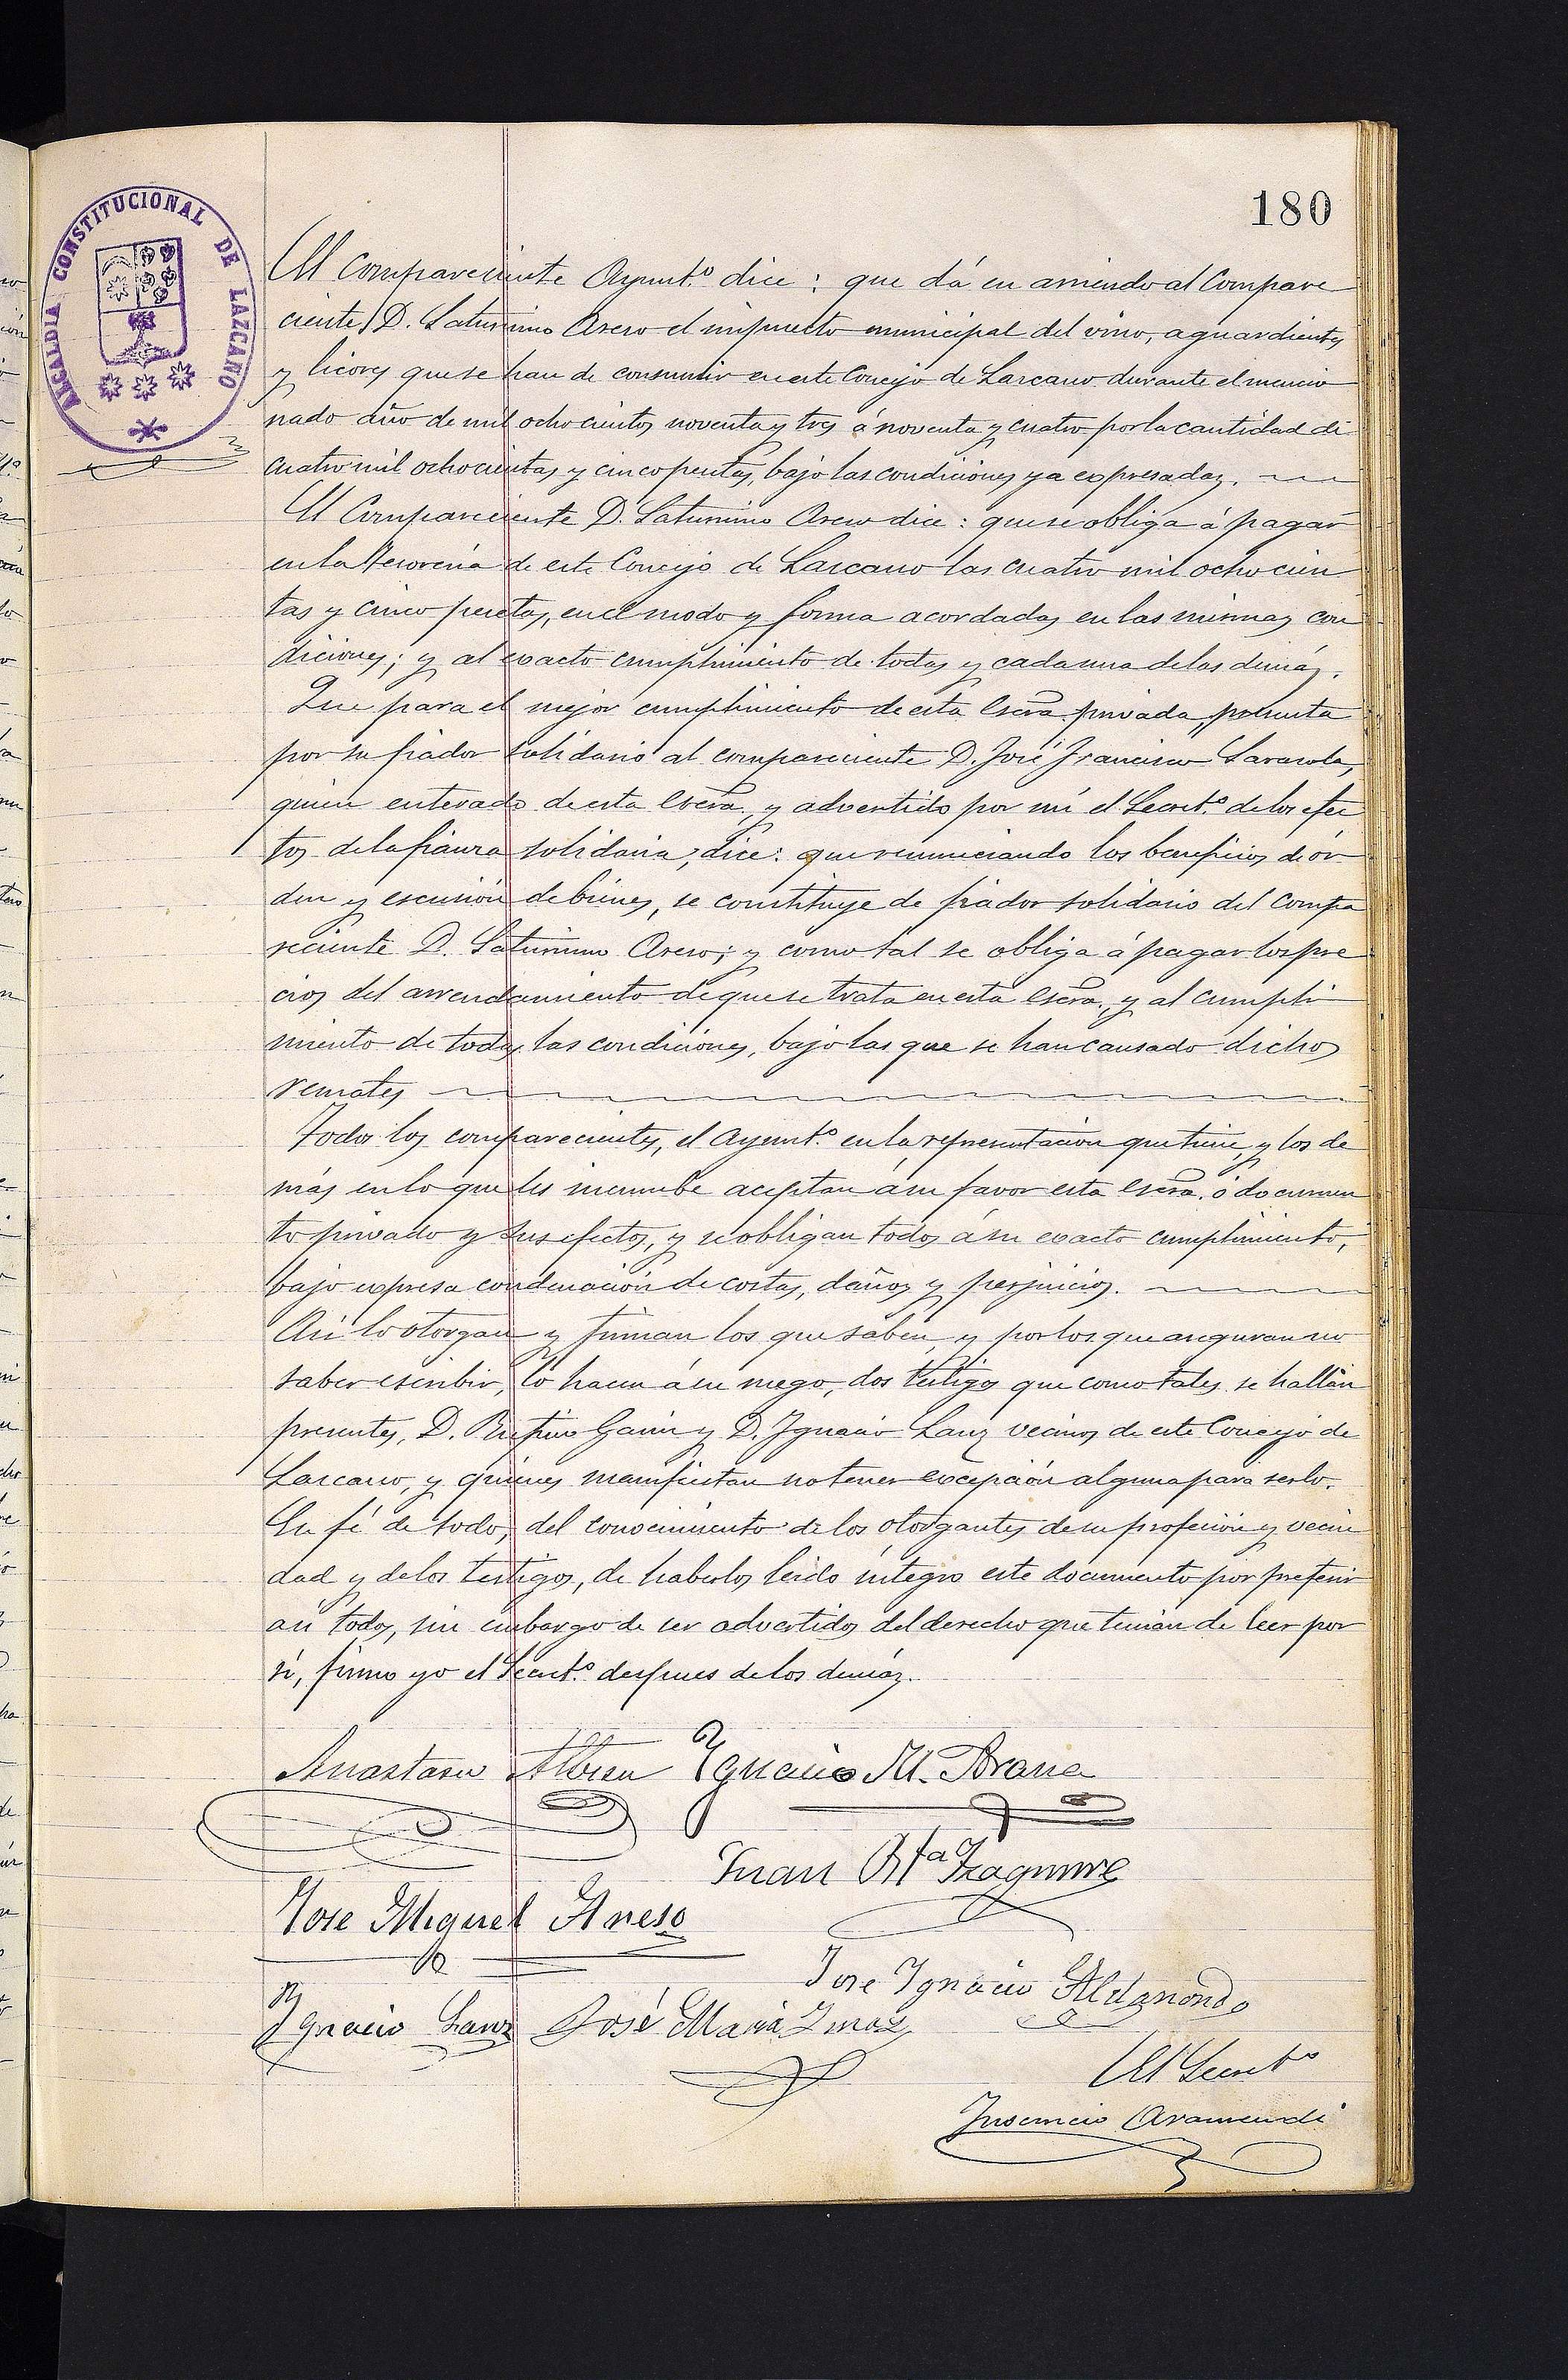 180
ALCALDIA CONSTITUCIONAL DE LAZCANO
El Compareciente Ayunt.º dice: que dá en arriendo al Compare
ciente D. Saturnino Areso el impuesto municipal del vino, aguardientes
y licores que se han de consumir en este Concejo de Lazcano durante el mencio
nado año de mil ochocientos noventa y tres á noventa y cuatro por la cantidad de
cuatro mil ochocientas y cinco pesetas, bajo las condiciones ya expresadas.
El Compareciente D. Saturnino Areso dice: que se obliga á pagar
en la Tesorería de este Concejo de Lazcano las cuatro mil ochocien
tas y cinco pesetas, en el modo y forma acordadas en las mismas con
diciones; y al exacto cumplimiento de todas y cada una de las demás.
Que para el mejor cumplimiento de esta Escra. privada, presenta
por su fiador solidario al compareciente D. José Francisco Sarasola,
quien enterado de esta Escra., y advertido por mí el Secret.º de los efec
tos de la fianza solidaria, dice: que renunciando los beneficios de ór
den y escusión de bienes, se constituye de fiador solidario del Compa
reciente D. Saturnino Areso; y como tal se obliga á pagar los pre
cios del arrendamiento de que se trata en esta Escra., y al cumpli
miento de todas las condiciones, bajo las que se han causado dichos
remates
Todos los comparecientes, el Ayunt.º en la representación que tiene, y los de
más en lo que les incumbe aceptan á su favor esta Escra. ó documen
to privado y sus efectos, y se obligan todos á su exacto cumplimiento,
bajo expresa condenación de costas, daños y perjuicios.
Así lo otorgan y firman los que saben, y por los que aseguran no
saber escribir, lo hacen á su ruego, dos testigos que como tales se hallan
presentes, D. Rufino Garin y D. Ignacio Sanz vecinos de este Concejo de
Lazcano, y quienes manifiestan no tener excepción alguna para serlo.
En fé de todo, del conocimiento de los otorgantes de su profesión y vecin
dad y de los testigos, de haberlos leido íntegro este documento por preferir
así todos, sin embargo de ser advertidos del derecho que tenían de leer por
sí, firmo yo el Secret.º despues de los demás.
Anastasio Albisu Ignacio M. Arana
Juan Bta Izaguirre
Jose Miguel Areso
Jose Ignacio Aldanondo
Ignacio Sanz José María Imaz
El Secretº
Inocencio Aramendi